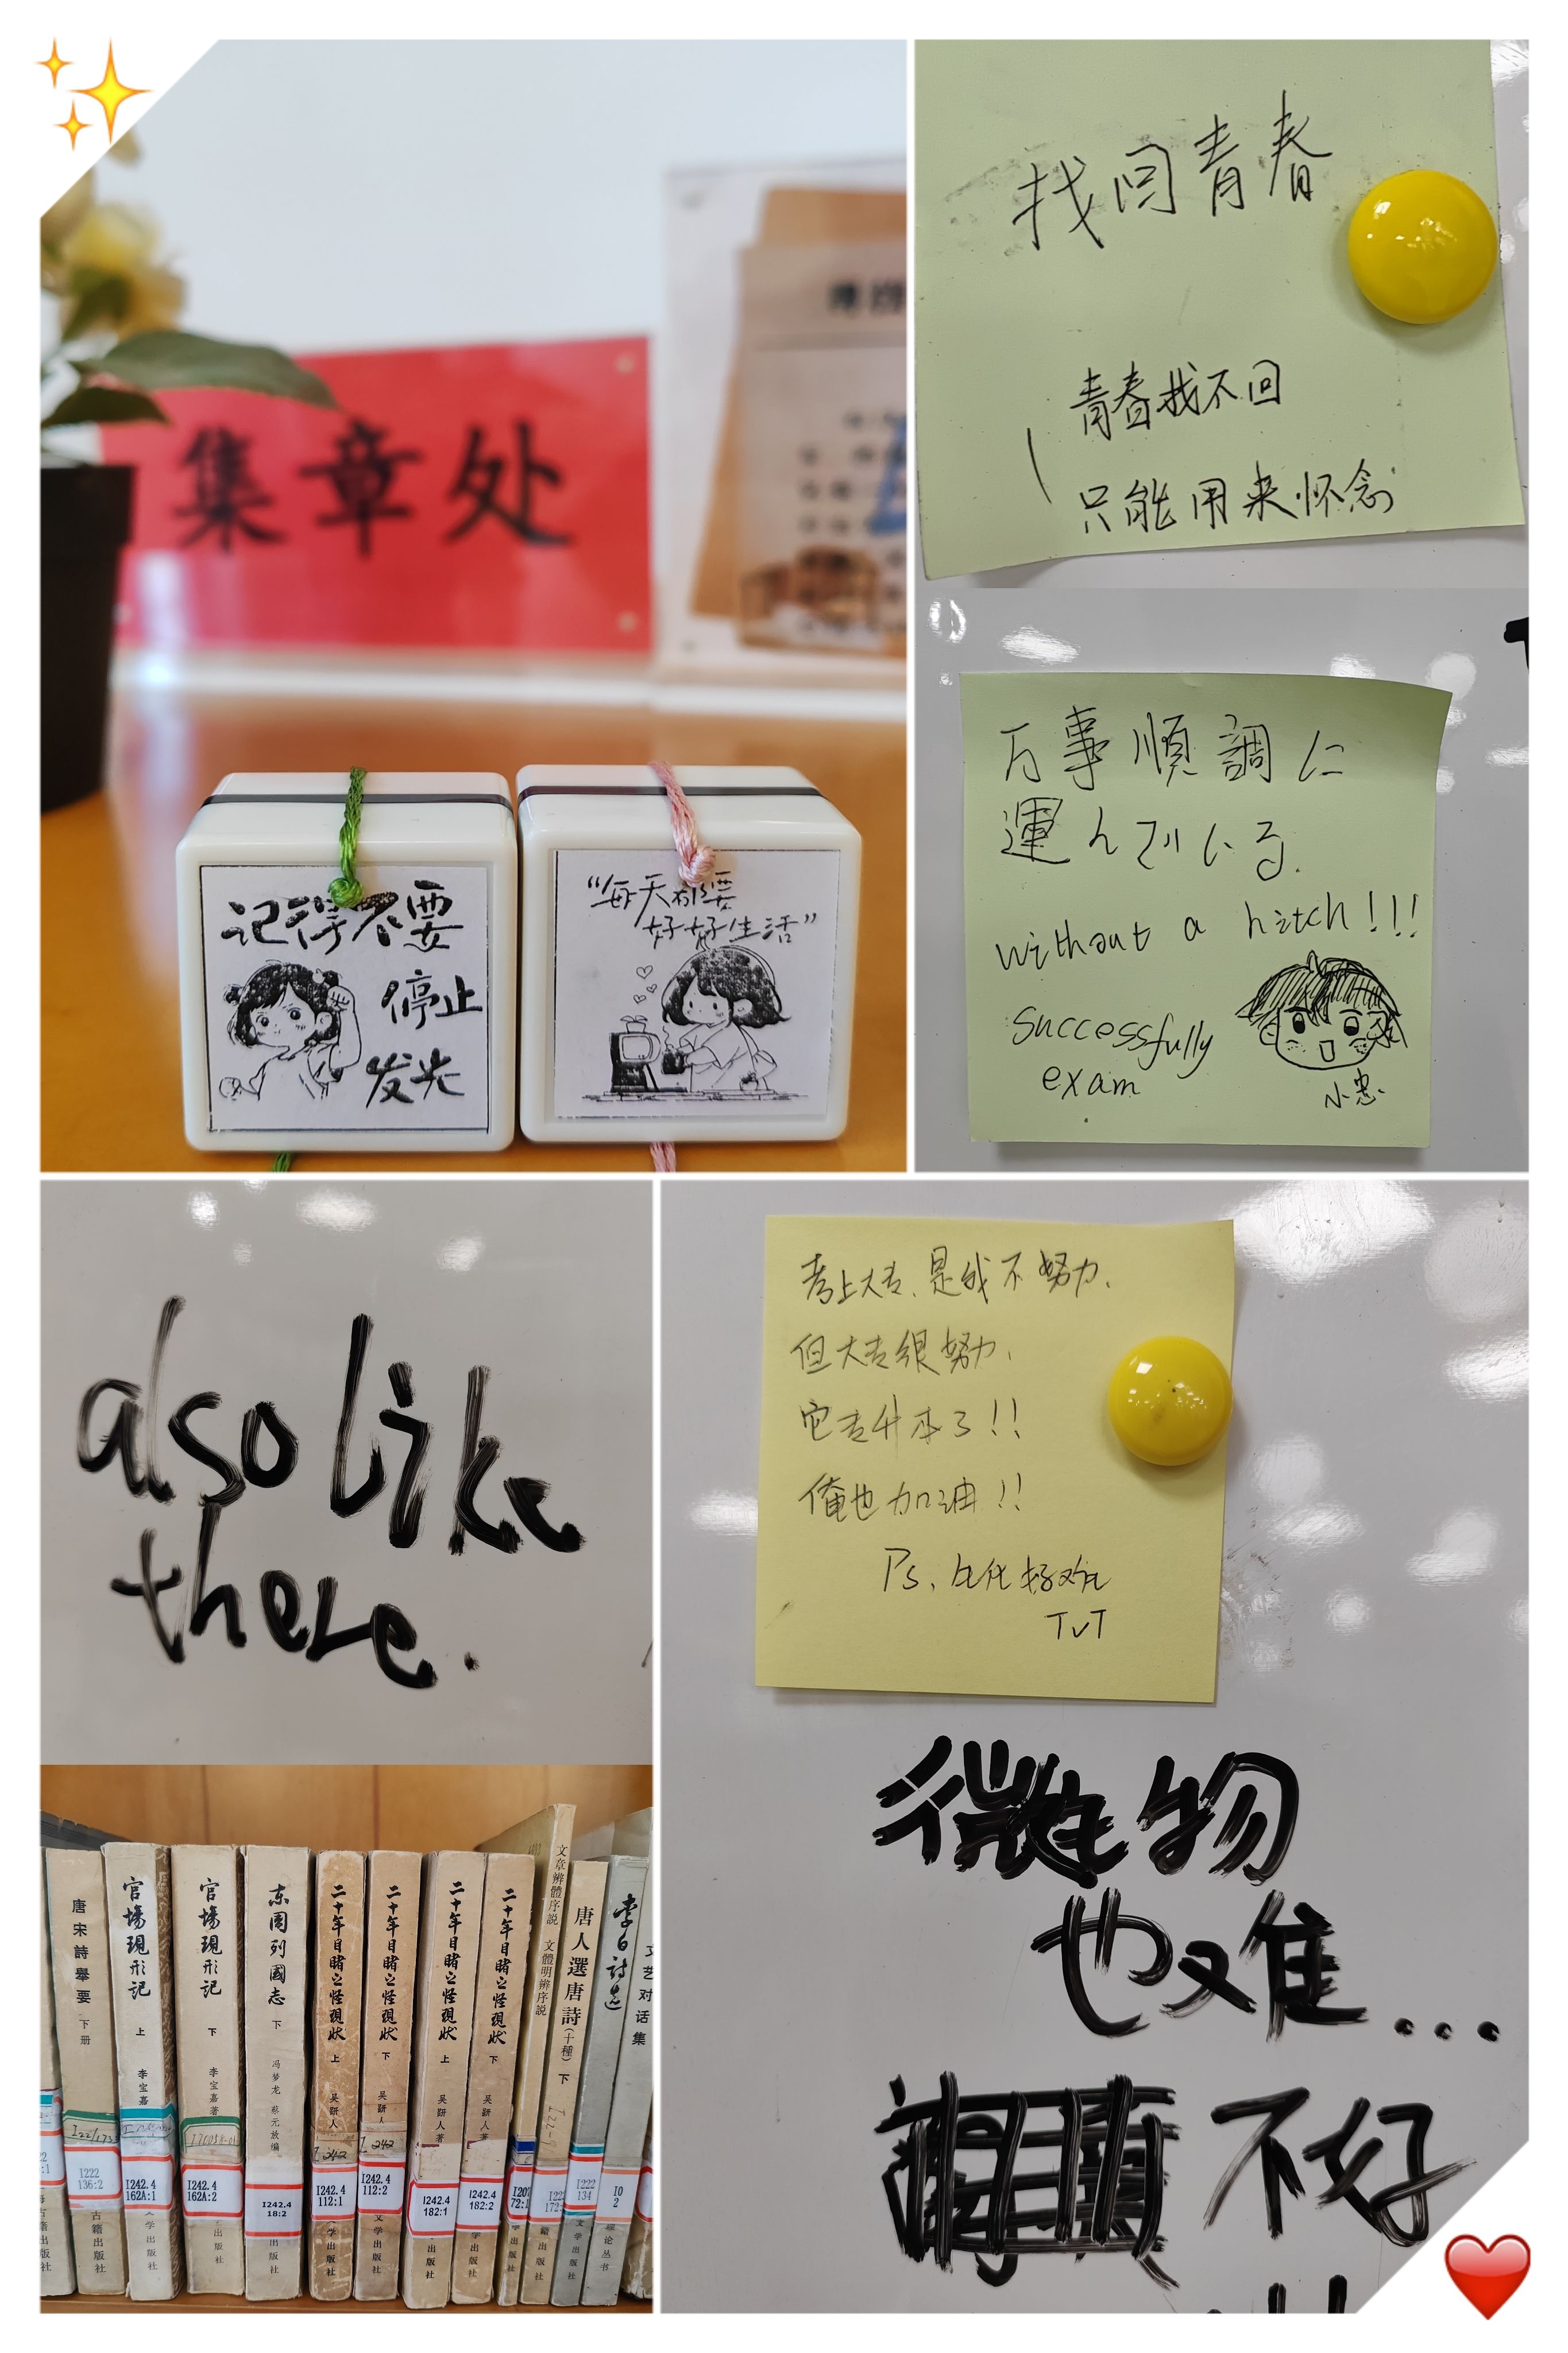 集章处
记得不要
停止
发光
“每天都要
好好生活”
找回青春
青春找不回
只能用来怀念
万事順調に
運んでいる.
without a hitch!!!
successfully
exam
小忠
also like
there.
考上大专,是我不努力,
但大专很努力,
它专升本了!!
俺也加油!!
Ps,生化好难
TvT
微生物
也又难...
不好
唐宋詩舉要 下册
官場現形记 上 李宝嘉
官場現形记 下 李宝嘉著
东周列國志 下 冯梦龙 蔡元放编
二十年目睹之怪现状 上 吴趼人
二十年目睹之怪现状 下 吴趼人
二十年目睹之怪现状 上 吴趼人著
二十年目睹之怪现状 下 吴趼人著
文章辨體序説 文體明辨序説
唐人選唐詩(十種) 下
李白诗选
文艺对话集
I222
136:2
I242.4
162A:1
I242.4
162A:2
I242.4
18:2
I242.4
112:1
I242.4
112:2
I242.4
182:1
I242.4
182:2
I207
72:1
I222
134
I0
2
古籍出版社